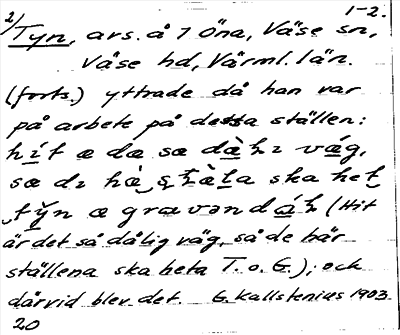 2/ 1-2.
Tyn, avs. å 7 Öna, Väse sn,
Väse hd, Värml. län.
(forts.) yttrade då han var
på arbete på detta ställen:
hít æ dæ sæ dàłı vǽg,
sæ dı hæ̀ ʂtæ̀ła ska het
tyn æ gravəndáł (Hit
är det så dålig väg, så de här
ställena ska heta T. o. G.); och
därvid blev det. G. Kallstenius 1903.
20